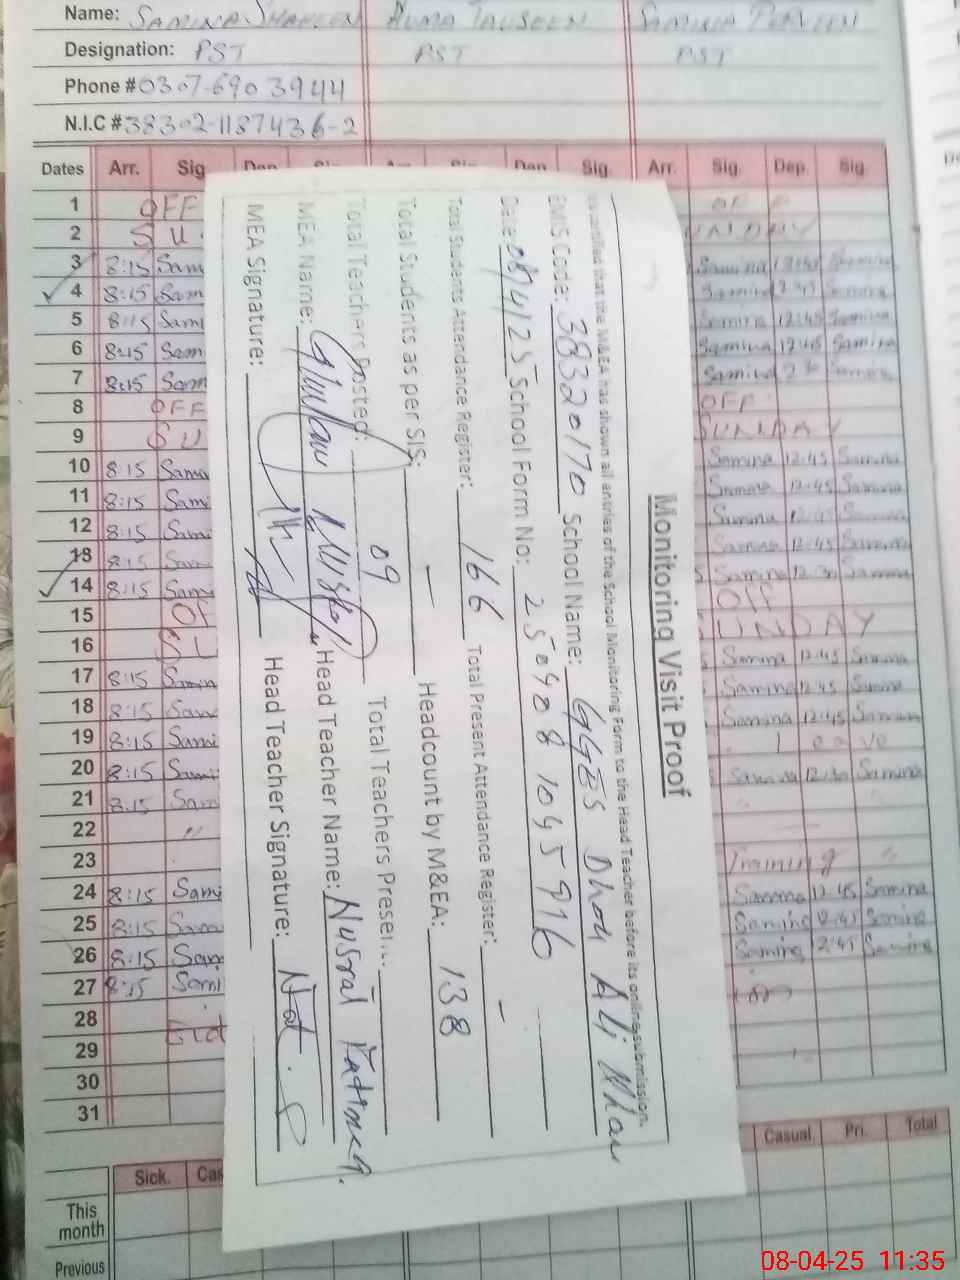 Name: SAMINA SHAHEEN HUMA TAUSEEN SAMINA PERVEEN
Designation: PST PST PST
Phone # 0307-690 3944
N.I.C # 38302-1187436-2
Dates Arr. Sig Dep Sig. Dep Sig. Arr. Sig. Dep. Sig.
1 OFF OFF
2 S U. UNDAY
3 8:15 Sam Samina 12:45 Samina
4 8:15 Sam Samina 2:45 Samina
5 8:15 Sami Samina 12:45 Samina
6 8:15 Sam Samina 12:45 Samina
7 8:15 Sam Samina Samina
8 OFF OFF
9 SU SUNDAY
10 8:15 Sam Samina 12:45 Samina
11 8:15 Sam Samina 12:45 Samina
12 8:15 Sam Samina 12:45 Samina
13 8:15 Sam Samina 12:45 Samina
14 8:15 Sam Samina 12:30 Samina
15 OF Off
16 SU SUNDAY
17 8:15 Samin Samina 12:45 Samina
18 8:15 Sam Samina 12:45 Samina
19 8:15 Sami Samina 12:45 Samina
20 8:15 Sami leave
21 8:15 Sam Samina 12:30 Samina
22 "
23 Training
24 8:15 Sami Samina 12:45 Samina
25 8:15 Sam Samina 12:45 Samina
26 8:15 Sam Samina 2:45 Samina
27 8:15 Sami
28 Eid
29
30
31
Sick. Cas Casual Pri. Total
This month
Previous
Monitoring Visit Proof
certified that the M&EA has shown all entries of the School Monitoring Form to the Head Teacher before its online submission.
EMIS Code: 38320170 School Name: GGES Dhok Ali Khan
Date: 08/4/25 School Form No: 2509081045916
Total Students Attendance Register: 166 Total Present Attendance Register: -
Total Students as per SIS: - Headcount by M&EA: 138
Total Teachers Posted: 09 Total Teachers Present:
MEA Name: Ghulam Head Teacher Name: Nusrat Fatima
MEA Signature: Head Teacher Signature:
08-04-25 11:35